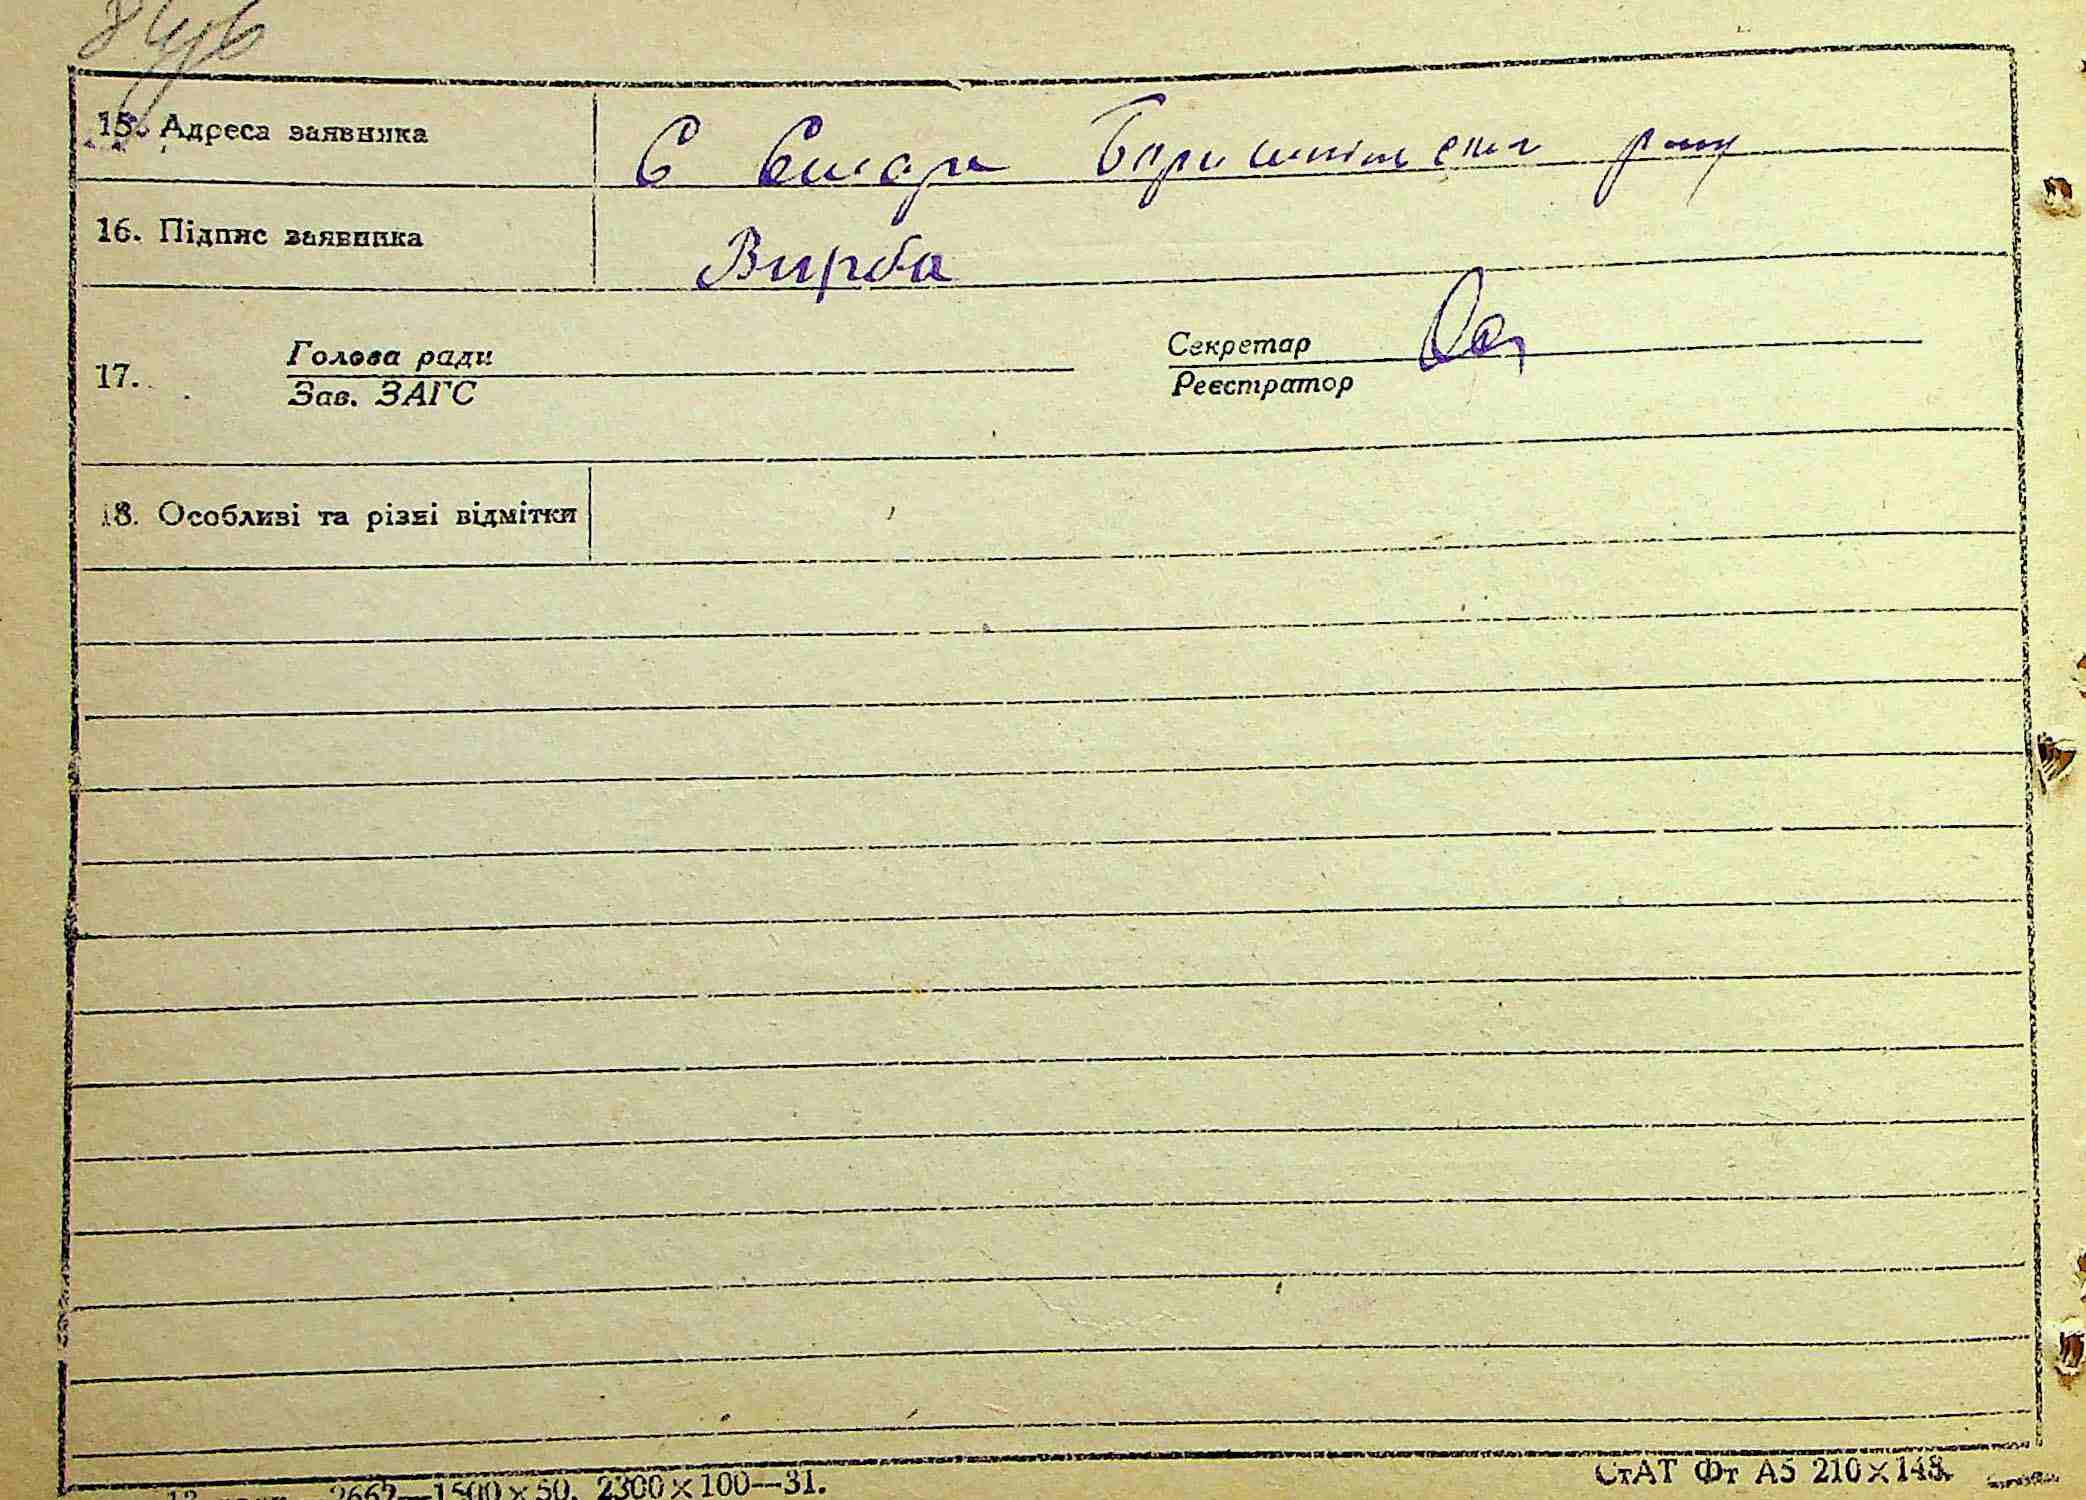 15. Адреса заявника
С Стара Бориспільськ р-ну
16. Підпис заявника
Вирба
17.
Голова ради
Зав. ЗАГС
Секретар
Реєстратор
18. Особливі та різні відмітки
2662—1500×50. 2300×100—31.
СтАТ Фт А5 210×148.